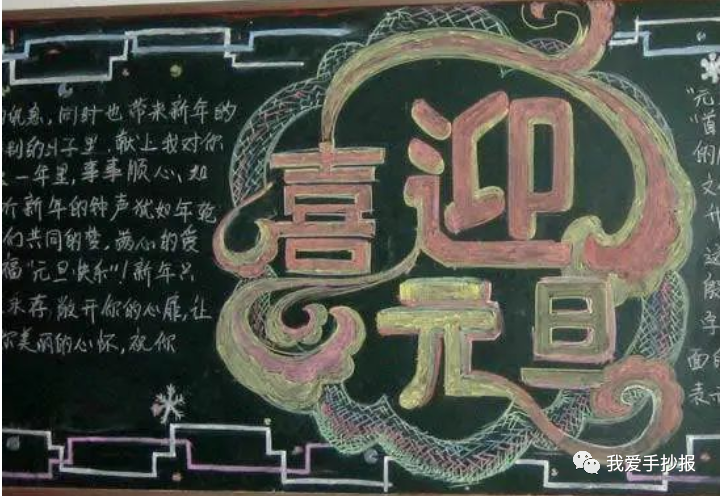 的祝愿,同时也带来新年的
利的日子里.献上我对你
一年里,事事顺心、如
新年的钟声犹如年轮
们共同的梦,满心的爱
福"元旦快乐"!新年只
来存,敞开你的心扉,让
尔美丽的心怀,祝你
喜迎
元旦
"元
"首
的
文
升
这
段
孕
面
表示
我爱手抄报